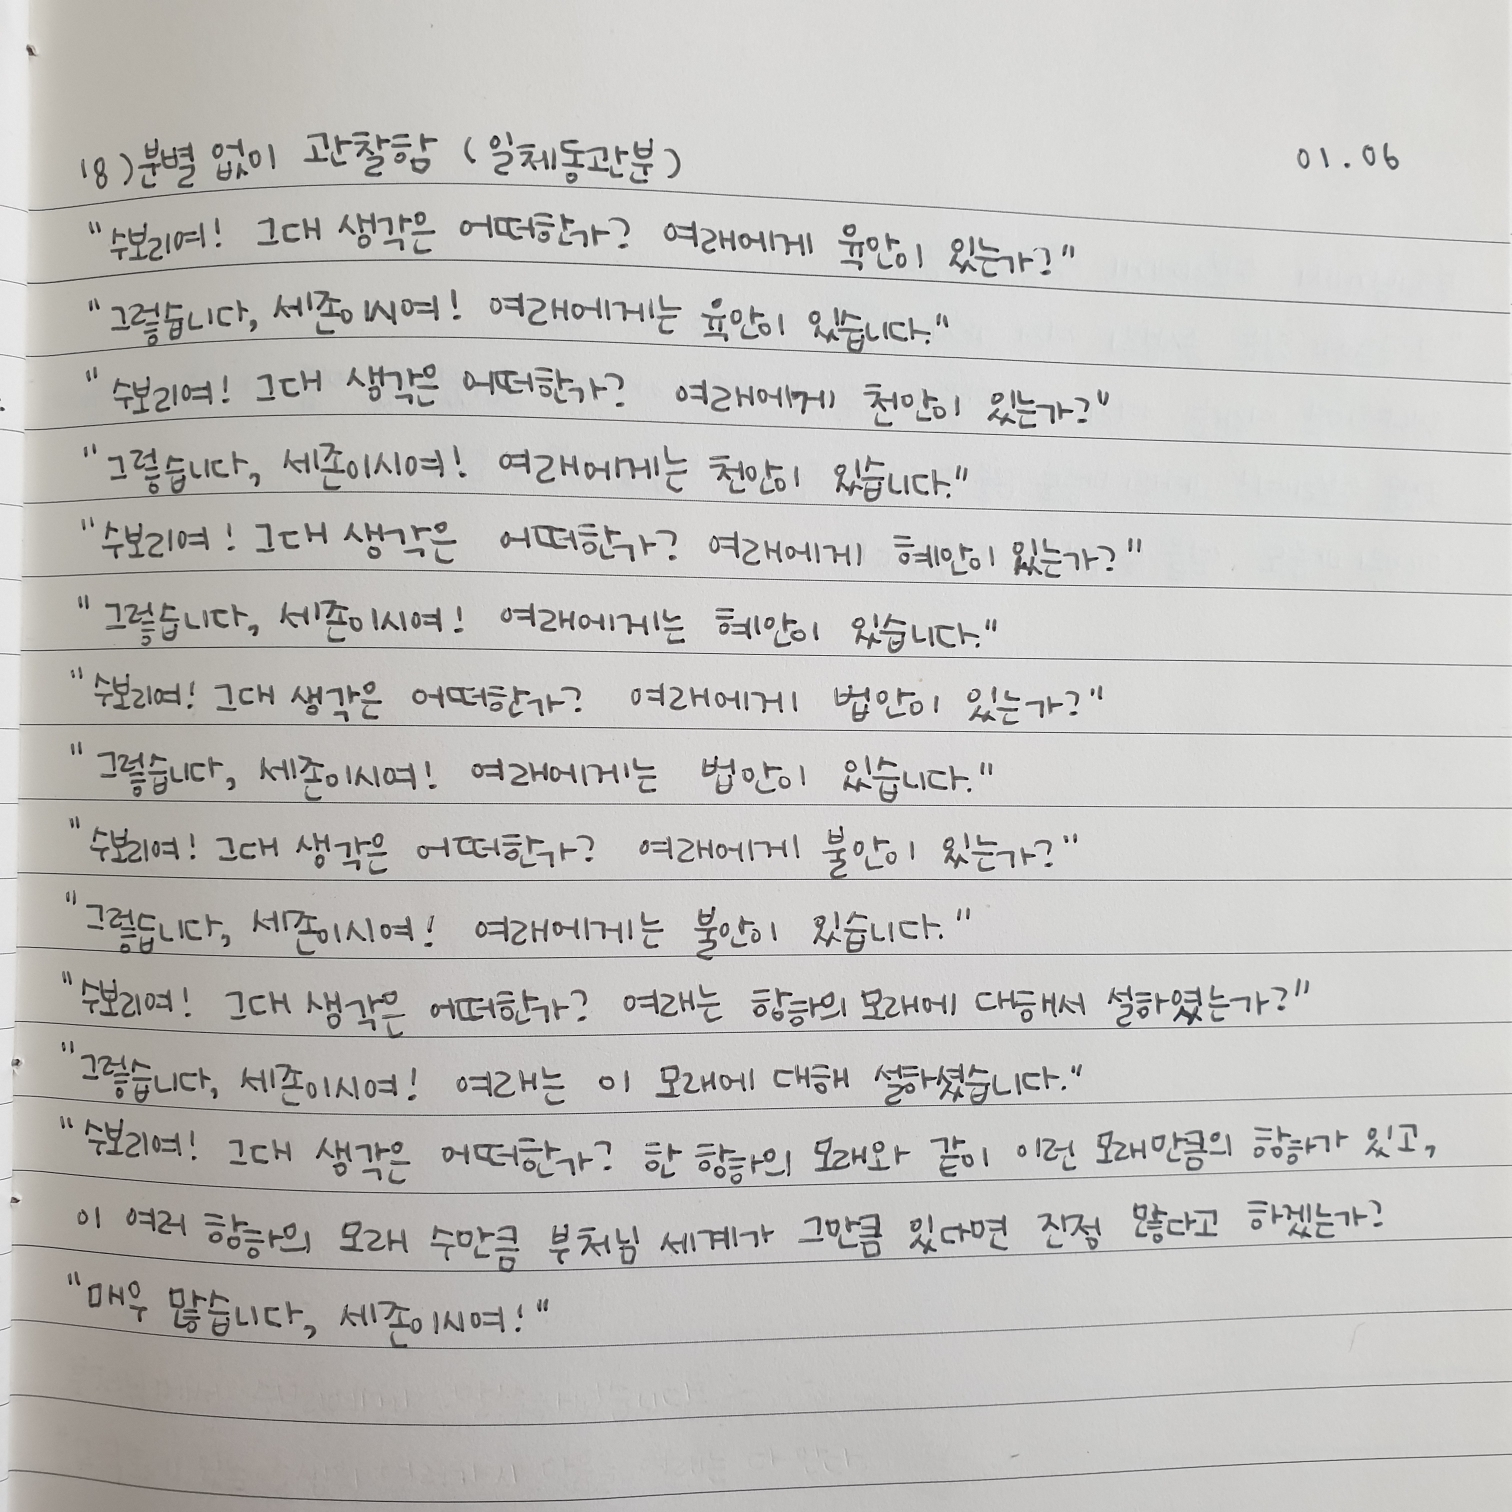 18) 분별 없이 관찰함 (일체동관분) 01.06
"수보리여! 그대 생각은 어떠한가? 여래에게 육안이 있는가?"
"그렇습니다, 세존이시여! 여래에게는 육안이 있습니다."
"수보리여! 그대 생각은 어떠한가? 여래에게 천안이 있는가?"
"그렇습니다, 세존이시여! 여래에게는 천안이 있습니다."
"수보리여! 그대 생각은 어떠한가? 여래에게 혜안이 있는가?"
"그렇습니다, 세존이시여! 여래에게는 혜안이 있습니다."
"수보리여! 그대 생각은 어떠한가? 여래에게 법안이 있는가?"
"그렇습니다, 세존이시여! 여래에게는 법안이 있습니다."
"수보리여! 그대 생각은 어떠한가? 여래에게 불안이 있는가?"
"그렇습니다, 세존이시여! 여래에게는 불안이 있습니다."
"수보리여! 그대 생각은 어떠한가? 여래는 항하의 모래에 대해서 설하였는가?"
"그렇습니다, 세존이시여! 여래는 이 모래에 대해 설하셨습니다."
"수보리여! 그대 생각은 어떠한가? 한 항하의 모래와 같이 이런 모래만큼의 항하가 있고,
이 여러 항하의 모래 수만큼 부처님 세계가 그만큼 있다면 진정 많다고 하겠는가?
"매우 많습니다, 세존이시여!"